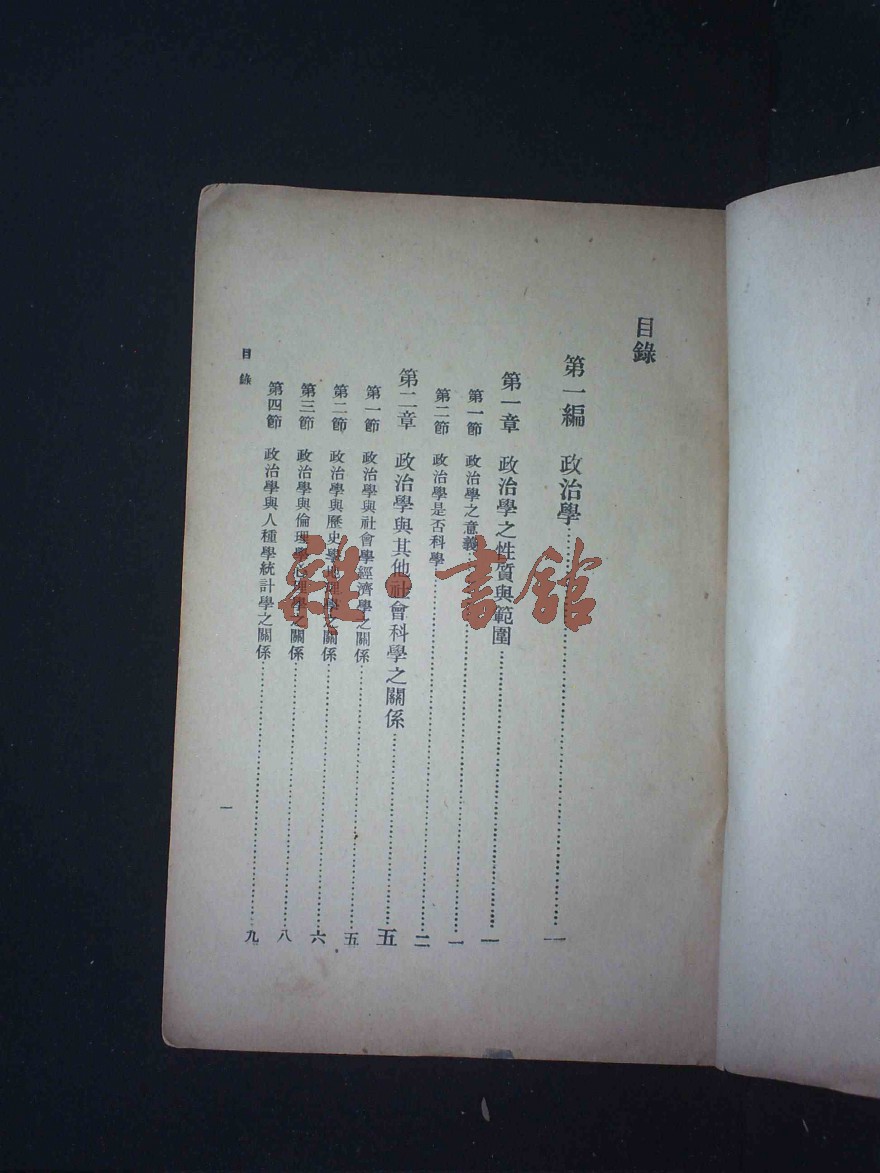 目錄
第一編 政治學……一
第一章 政治學之性質與範圍……一
第一節 政治學之意義……一
第二節 政治學是否科學……二
第二章 政治學與其他社會科學之關係……五
第一節 政治學與社會學經濟學之關係……五
第二節 政治學與歷史學地理學之關係……六
第三節 政治學與倫理學心理學之關係……八
第四節 政治學與人種學統計學之關係……九
目錄
一
雜·書館